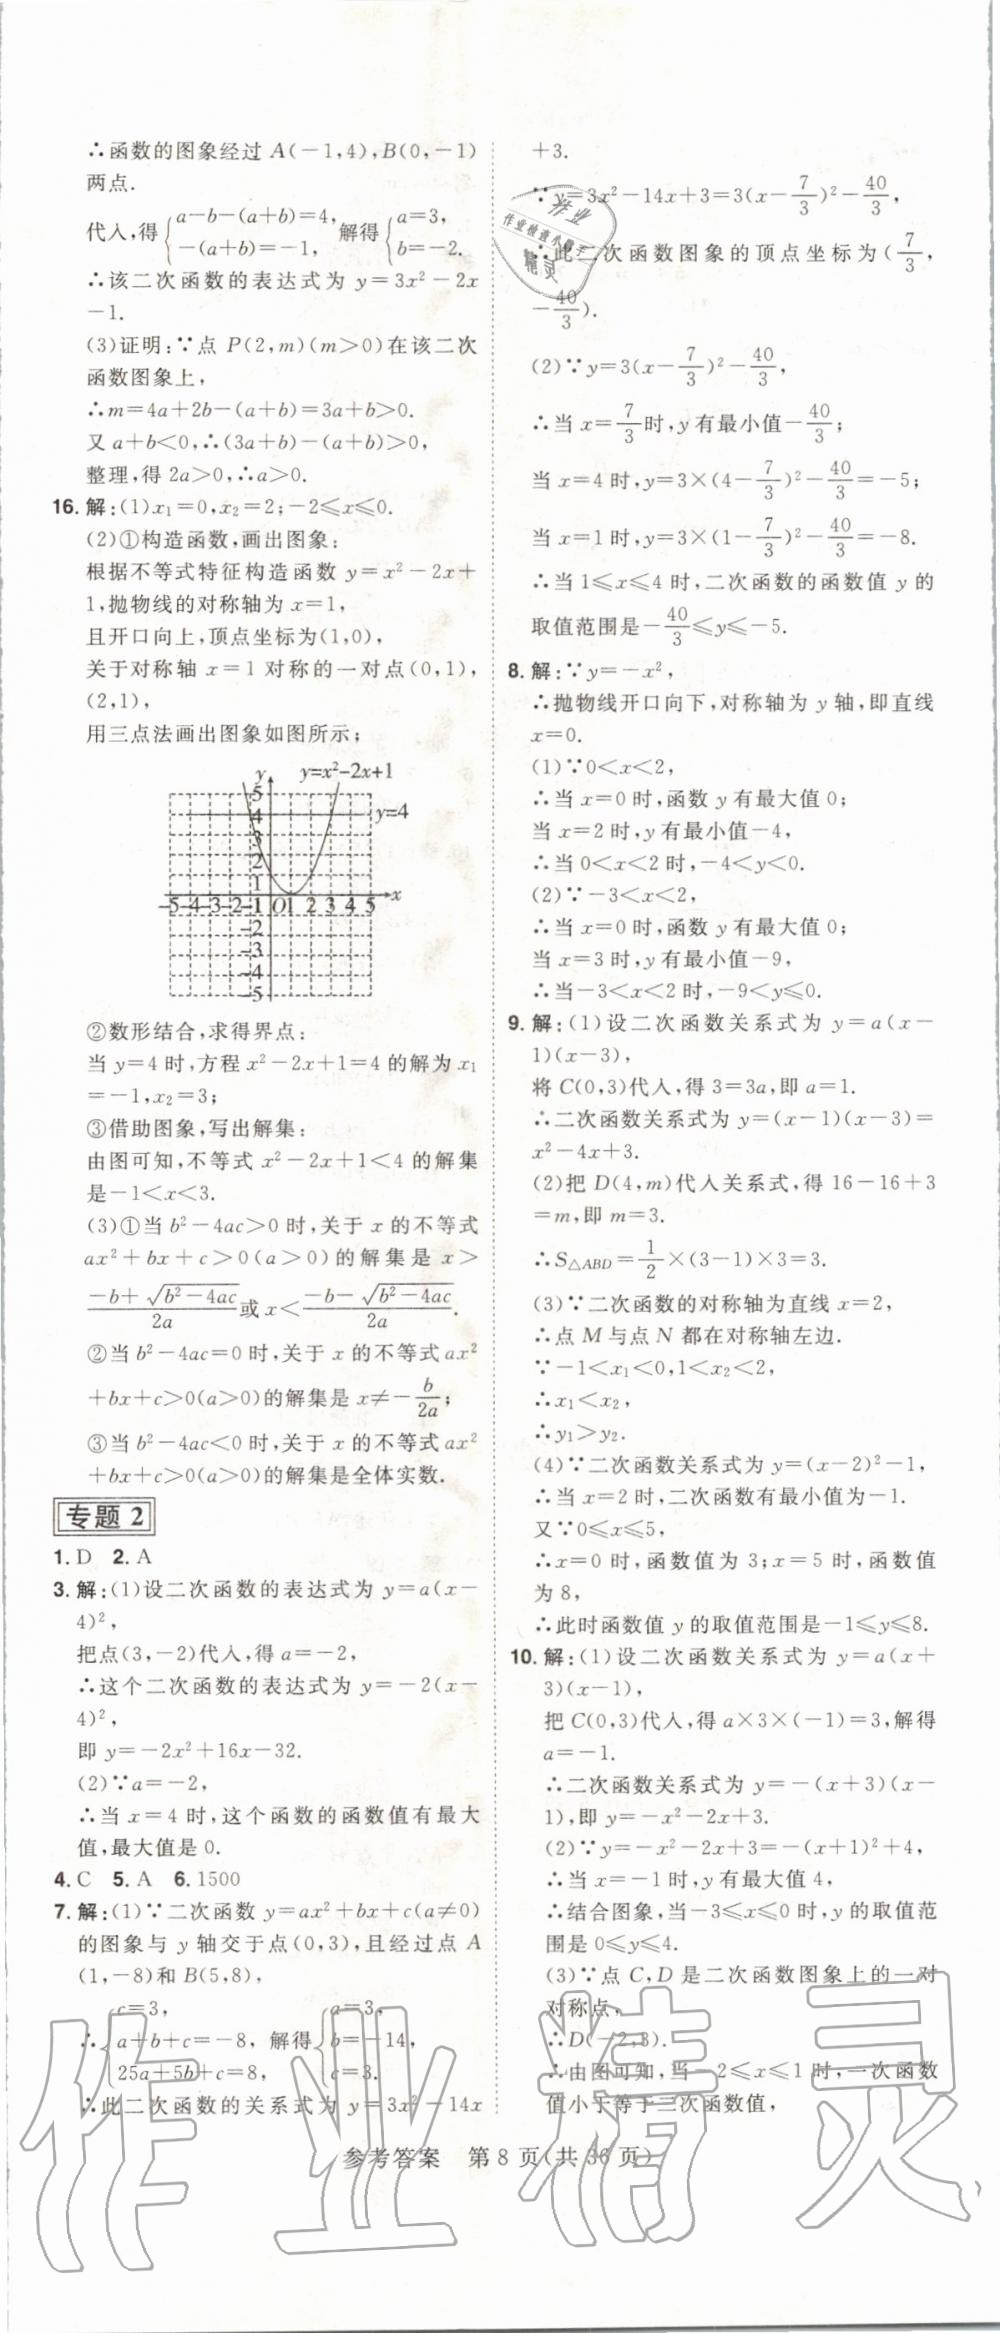 ∴函数的图象经过 A(-1,4),B(0,-1)
两点.
代入,得{a-b-(a+b)=4, -(a+b)=-1, 解得{a=3, b=-2.
∴该二次函数的表达式为 y=3x²-2x
-1.
(3)证明:∵点 P(2,m)(m>0)在该二次
函数图象上,
∴m=4a+2b-(a+b)=3a+b>0.
又 a+b<0,∴(3a+b)-(a+b)>0,
整理,得 2a>0,∴a>0.
16. 解:(1)x₁=0,x₂=2;-2≤x≤0.
(2)①构造函数,画出图象:
根据不等式特征构造函数 y=x²-2x+
1,抛物线的对称轴为 x=1,
且开口向上,顶点坐标为(1,0),
关于对称轴 x=1 对称的一对点(0,1),
(2,1),
用三点法画出图象如图所示;
y y=x²-2x+1
5
4 y=4
3
2
1
-5-4-3-2-1 O 1 2 3 4 5 x
-2
-3
-4
-5
②数形结合,求得界点:
当 y=4 时,方程 x²-2x+1=4 的解为 x₁
=-1,x₂=3;
③借助图象,写出解集:
由图可知,不等式 x²-2x+1<4 的解集
是-1<x<3.
(3)①当 b²-4ac>0 时,关于 x 的不等式
ax²+bx+c>0(a>0)的解集是 x>
(-b+√(b²-4ac))/2a 或 x<(-b-√(b²-4ac))/2a.
②当 b²-4ac=0 时,关于 x 的不等式 ax²
+bx+c>0(a>0)的解集是 x≠-b/2a;
③当 b²-4ac<0 时,关于 x 的不等式 ax²
+bx+c>0(a>0)的解集是全体实数.
专题 2
1. D 2. A
3. 解:(1)设二次函数的表达式为 y=a(x-
4)²,
把点(3,-2)代入,得 a=-2,
∴这个二次函数的表达式为 y=-2(x-
4)²,
即 y=-2x²+16x-32.
(2)∵a=-2,
∴当 x=4 时,这个函数的函数值有最大
值,最大值是 0.
4. C 5. A 6. 1500
7. 解:(1)∵二次函数 y=ax²+bx+c(a≠0)
的图象与 y 轴交于点(0,3),且经过点 A
(1,-8)和 B(5,8),
∴{c=3, a+b+c=-8, 25a+5b+c=8, 解得{a=3, b=-14, c=3.
∴此二次函数的关系式为 y=3x²-14x
+3.
∵y=3x²-14x+3=3(x-7/3)²-40/3,
∴此二次函数图象的顶点坐标为(7/3,
-40/3).
(2)∵y=3(x-7/3)²-40/3,
∴当 x=7/3时,y 有最小值-40/3;
当 x=4 时,y=3×(4-7/3)²-40/3=-5;
当 x=1 时,y=3×(1-7/3)²-40/3=-8.
∴当 1≤x≤4 时,二次函数的函数值 y 的
取值范围是-40/3≤y≤-5.
8. 解:∵y=-x²,
∴抛物线开口向下,对称轴为 y 轴,即直线
x=0.
(1)∵0<x<2,
∴当 x=0 时,函数 y 有最大值 0;
当 x=2 时,y 有最小值-4,
∴当 0<x<2 时,-4<y<0.
(2)∵-3<x<2,
∴当 x=0 时,函数 y 有最大值 0;
当 x=3 时,y 有最小值-9,
∴当-3<x<2 时,-9<y≤0.
9. 解:(1)设二次函数关系式为 y=a(x-
1)(x-3),
将 C(0,3)代入,得 3=3a,即 a=1.
∴二次函数关系式为 y=(x-1)(x-3)=
x²-4x+3.
(2)把 D(4,m)代入关系式,得 16-16+3
=m,即 m=3.
∴S△ABD=1/2×(3-1)×3=3.
(3)∵二次函数的对称轴为直线 x=2,
∴点 M 与点 N 都在对称轴左边.
∵-1<x₁<0,1<x₂<2,
∴x₁<x₂,
∴y₁>y₂.
(4)∵二次函数关系式为 y=(x-2)²-1,
∴当 x=2 时,二次函数有最小值为-1.
又∵0≤x≤5,
∴x=0 时,函数值为 3;x=5 时,函数值
为 8,
∴此时函数值 y 的取值范围是-1≤y≤8.
10. 解:(1)设二次函数关系式为 y=a(x+
3)(x-1),
把 C(0,3)代入,得 a×3×(-1)=3,解得
a=-1.
∴二次函数关系式为 y=-(x+3)(x-
1),即 y=-x²-2x+3.
(2)∵y=-x²-2x+3=-(x+1)²+4,
∴当 x=-1 时,y 有最大值 4,
∴结合图象,当-3≤x≤0 时,y 的取值范
围是 0≤y≤4.
(3)∵点 C,D 是二次函数图象上的一对
对称点,
∴D(-2,3).
∴由图可知,当-2≤x≤1 时,一次函数
值小于等于二次函数值,
参考答案 第 8 页(共 36 页)
作业
作业检查小助手
精灵
作业精灵